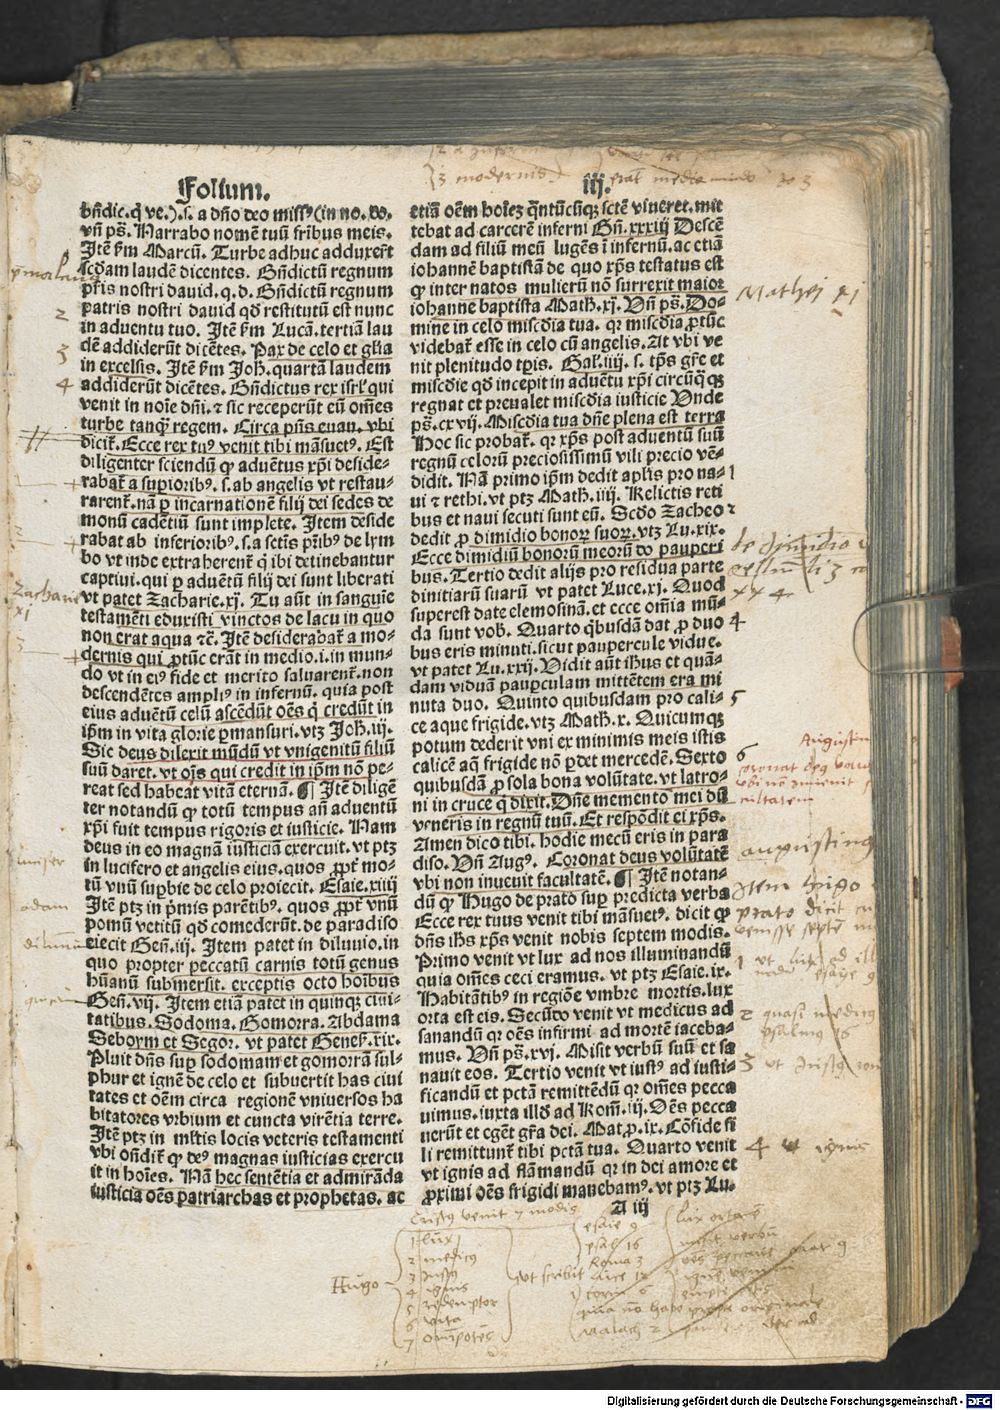 Folium. iij.
bn̄dic. q̇ ve.).s. a dn̄o deo miss⁹ (in no. do.
vn̄ ps̄. Narrabo nomē tuū frībus meis.
Itē ẜm Marcū. Turbe adhuc adduxer̄t
scd̄am laudē dicentes. Bn̄dictū regnum
pr̄is nostri dauid. q. d. Bn̄dictū regnum
patris nostri dauid qd̄ restitutū est nunc
in aduentu tuo. Itē ẜm Lucā. tertiā lau
dē addiderūt dicētes. Pax de celo et gl̄ia
in excelsis. Itē ẜm Joh̄. quartā laudem
addiderūt dicētes. Bn̄dictus rex isrl̄ qui
venit in noīe dn̄i. ⁊ sic receperūt eū om̄es
turbe tanq̄ regem. Circa pn̄s euan. vbi
dicit̄. Ecce rex tu⁹ venit tibi māsuet⁹. Est
diligenter sciendū ꝙ aduētus xp̄i deside-
rabat̄ a supiorib⁹. s. ab angelis vt restau-
rarent̄. nā ꝑ incarnationē filij dei sedes de
monū cadētiū sunt implete. Item deside
rabat ab inferiorib⁹. s. a sctīs pr̄ib⁹ de lym
bo vt inde extraherent̄ q̇ ibi detinebantur
captiui. qui ꝑ aduētū filij dei sunt liberati
vt patet Zacharie. xj. Tu aūt in sanguīe
testamēti eduxisti vinctos de lacu in quo
non erat aqua ⁊c̄. Itē desiderabat̄ a mo-
dernis qui ꝓtūc erāt in medio. i. in mun-
do vt in ei⁹ fide et merito saluarent̄. non
descendētes ampli⁹ in infernū. quia post
eius aduētū celū ascēdūt oēs q̇ credūt in
ip̄m in vita glorie ꝑmansuri. vtꝫ Joh̄. iij.
Sic deus dilexit mūdū vt vnigenitū filiū
suū daret. vt oīs qui credit in ip̄m nō pe-
reat sed habeat vitā eternā. ¶ Itē diligē
ter notandū ꝙ totū tempus an̄ aduentū
xp̄i fuit tempus rigoris et iusticie. Nam
deus in eo magnā iusticiā exercuit. vt ptꝫ
in lucifero et angelis eius. quos ꝓpt̄ mo-
tū vnū supbie de celo proiecit. Esaie. xiiij
Itē ptꝫ in p̄mis parētib⁹. quos ꝓpt̄ vnū
pomū vetitū qd̄ comederūt. de paradiso
eiecit Gen̄. iij. Item patet in diluuio. in
quo propter peccatū carnis totū genus
hūanū submersit. exceptis octo hoībus
Gen̄. vij. Item etiā patet in quinqꝫ ciui-
tatibus. Sodoma. Gomorra. Abdama
Seboym et Segor. vt patet Genes̄. xix.
Pluit dn̄s sup sodomam et gomorrā sul-
phur et ignē de celo et subuertit has ciui
tates et oēm circa regionē vniuersos ha
bitatores vrbium et cuncta virētia terre.
Itē ptꝫ in ml̄tis locis veteris testamenti
vbi ōndit̄ ꝙ de⁹ magnas iusticias exercu
it in hoīes. Nā hec sentētia et admirāda
iusticia oēs patriarchas et prophetas. ac
etiā oēm hoīeꝫ q̄ntūcūqꝫ sctē viueret. mit
tebat ad carcerē inferni Gn̄. xxxiij Descē
dam ad filiū meū lugēs ī infernū. ac etiā
iohannē baptistā de quo xp̄s testatus est
ꝙ inter natos mulierū nō surrexit maior
iohanne baptista Math̄. xj. Vn̄ ps̄. Do-
mine in celo misc̄dia tua. qr misc̄dia ꝓtūc
videbat̄ esse in celo cū angelis. At vbi ve
nit plenitudo tp̄is. Gal̄. iiij. s. tp̄s gr̄e et
misc̄die qd̄ incepit in aduētu xp̄i circūq̄qꝫ
regnat et preualet misc̄dia iusticie Vnde
ps̄. cxvij. Misc̄dia tua dn̄e plena est terra
Hoc sic probat̄. qr xp̄s post aduentū suū
regnū celorū preciosissimū vili precio vē-
didit. Nā primo ip̄m dedit aplīs pro na-
ui ⁊ rethi. vt ptꝫ Math̄. iiij. Relictis reti
bus et naui secuti sunt eū. Scd̄o Zacheo
dedit ꝓ dimidio bonoꝝ suoꝝ. vtꝫ Lu. xix.
Ecce dimidiū bonorū meorū do pauperi
bus. Tertio dedit alijs pro residua parte
diuitiarū suarū vt patet Luce. xj. Quod
superest date elemosinā. et ecce om̄ia mū-
da sunt vob̄. Quarto q̇busdā dat ꝓ duo
bus eris minuti. sicut paupercule vidue.
vt patet Lu. xxij. Vidit aūt ih̄us et quā-
dam viduā paupculam mittētem era mi
nuta duo. Quinto quibusdam pro cali-
ce aque frigide. vtꝫ Math̄. x. Quicumqꝫ
potum dederit vni ex minimis meis istis
calicē aq̄ frigide nō ꝑdet mercedē. Sexto
quibusdā ꝓ sola bona volūtate. vt latro-
ni in cruce q̇ dixit. Dn̄e memento mei dū
veneris in regnū tuū. Et respōdit ei xp̄s.
Amen dico tibi. hodie mecū eris in para
diso. Vn̄ Aug⁹. Coronat deus volūtatē
vbi non inuenit facultatē. ¶ Itē notan-
dū ꝙ Hugo de prato sup predicta verba
Ecce rex tuus venit tibi māsuet⁹. dicit ꝙ
dn̄s ih̄s xp̄s venit nobis septem modis.
Primo venit vt lux ad nos illuminandū
quia om̄es ceci eramus. vt ptꝫ Esaie. ix.
Habitātib⁹ in regiōe vmbre mortis. lux
orta est eis. Secūdo venit vt medicus ad
sanandū qr oēs infirmi ad mortē iaceba-
mus. Vn̄ ps̄. xvj. Misit verbū suū et sa
nauit eos. Tertio venit vt iust⁹ ad iusti-
ficandū et pctā remittēdū qr om̄es pecca
uimus. iuxta illd̄ ad Rom̄. iij. Oēs pecca
uerūt et egēt gr̄a dei. Mat. ꝓ. ix. Cōfide fi
li remittunt̄ tibi pctā tua. Quarto venit
vt ignis ad flāmandū qr in dei amore et
ꝓximi oēs frigidi manebam⁹. vt ptꝫ Lu.
A iij
3 modernis
2
3
4
Zacharie
xj
3
adam
Mathei xj
1
2
4
5
6
augustinus
Item hugo
prato dicit
2 quasi medicus
psalmus 16
3 vt Just⁹
4
Cristus venit 7 modis
Hugo
1 lux
2 medicus
3 Justus
4 ignis
5 redemptor
6 vita
7 omīpotēs
vt scribit
esaie 9
psal 16
Roma 3
luce 12
lux orta